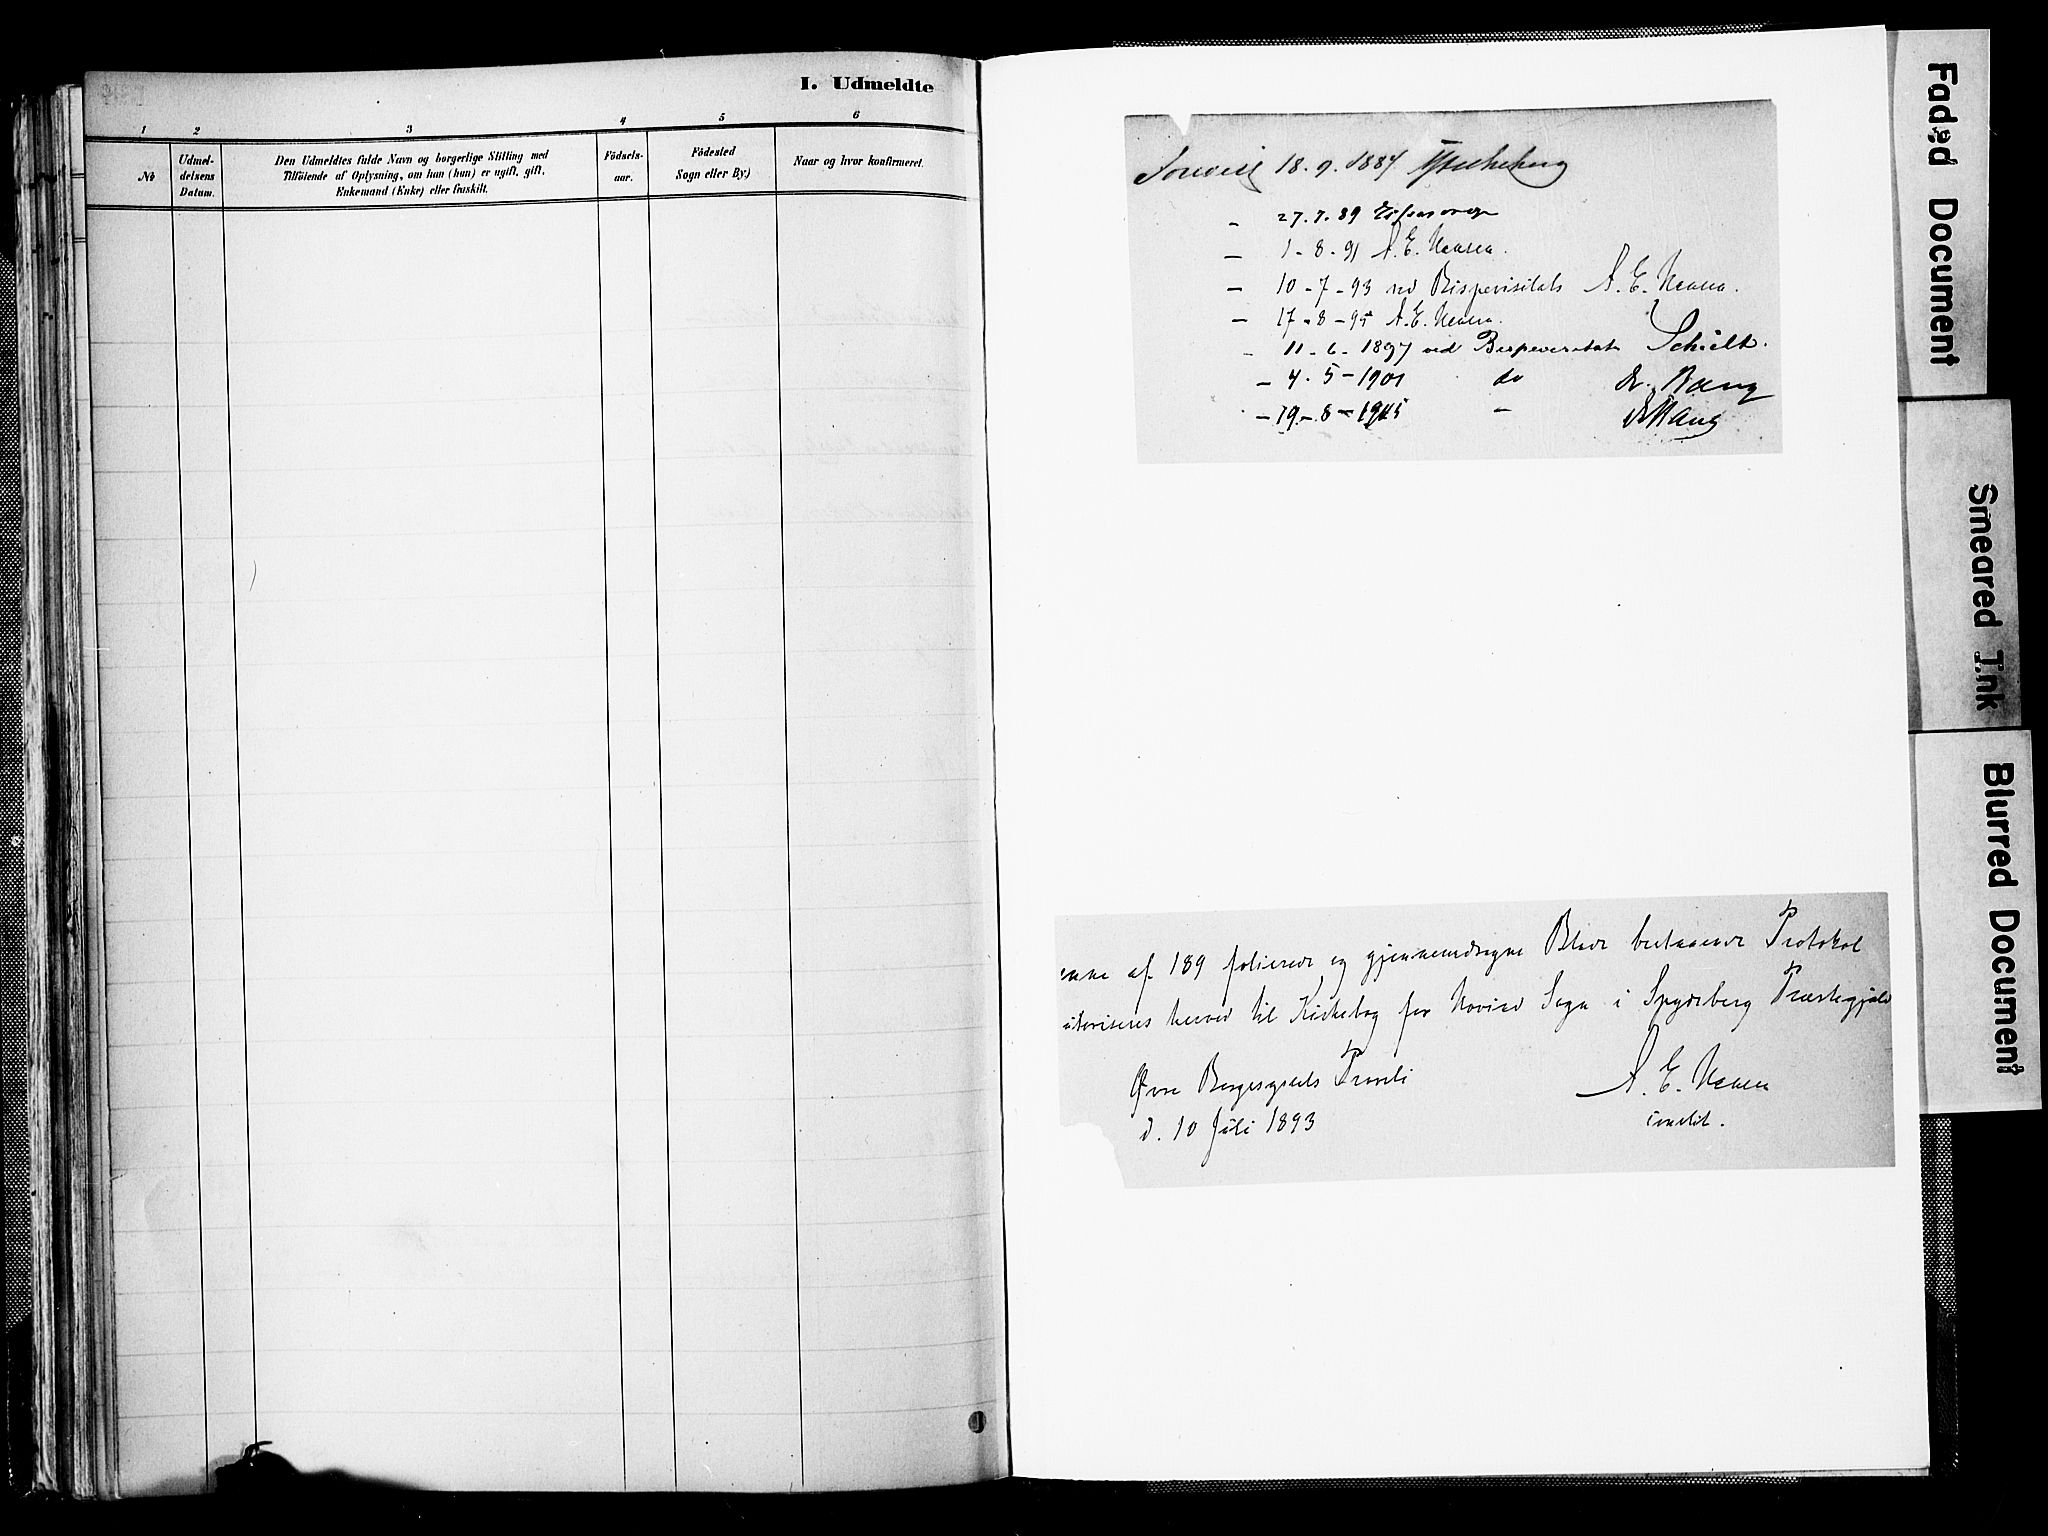 I. Udmeldte
1 2 3 4 5 6
No
Udmel-
delsens
Datum.
Den Udmeldtes fulde Navn og borgerlige Stilling med
Tilföiende af Oplysning, om han (hun) er ugift, gift,
Enkemand (Enke) eller fraskilt.
Födsels-
aar.
Födested
Sogn eller By.)
Naar og hvor konfirmeret.
18.9.1887
- 27.7.89
- 1-8-91 A. E. Næsen.
- 10-7-93 ved Bispevisitats A. E. Næsen.
- 17-8-95 A. E. Næsen.
- 11-6-1897 ved Bispevisitats
- 4.5-1901 do Dr. Bang
- 19-8-1905 - Bang
af 189 folierede og gjennemdragne Blade bestaaende Protokol
herved til Kirkebog for Hovind Sogn i Spydeberg Præstegjeld
Øvre Borgesyssels Provsti A. E. Næsen
d. 10 Juli 1893
Faded Document
Smeared Ink
Blurred Document